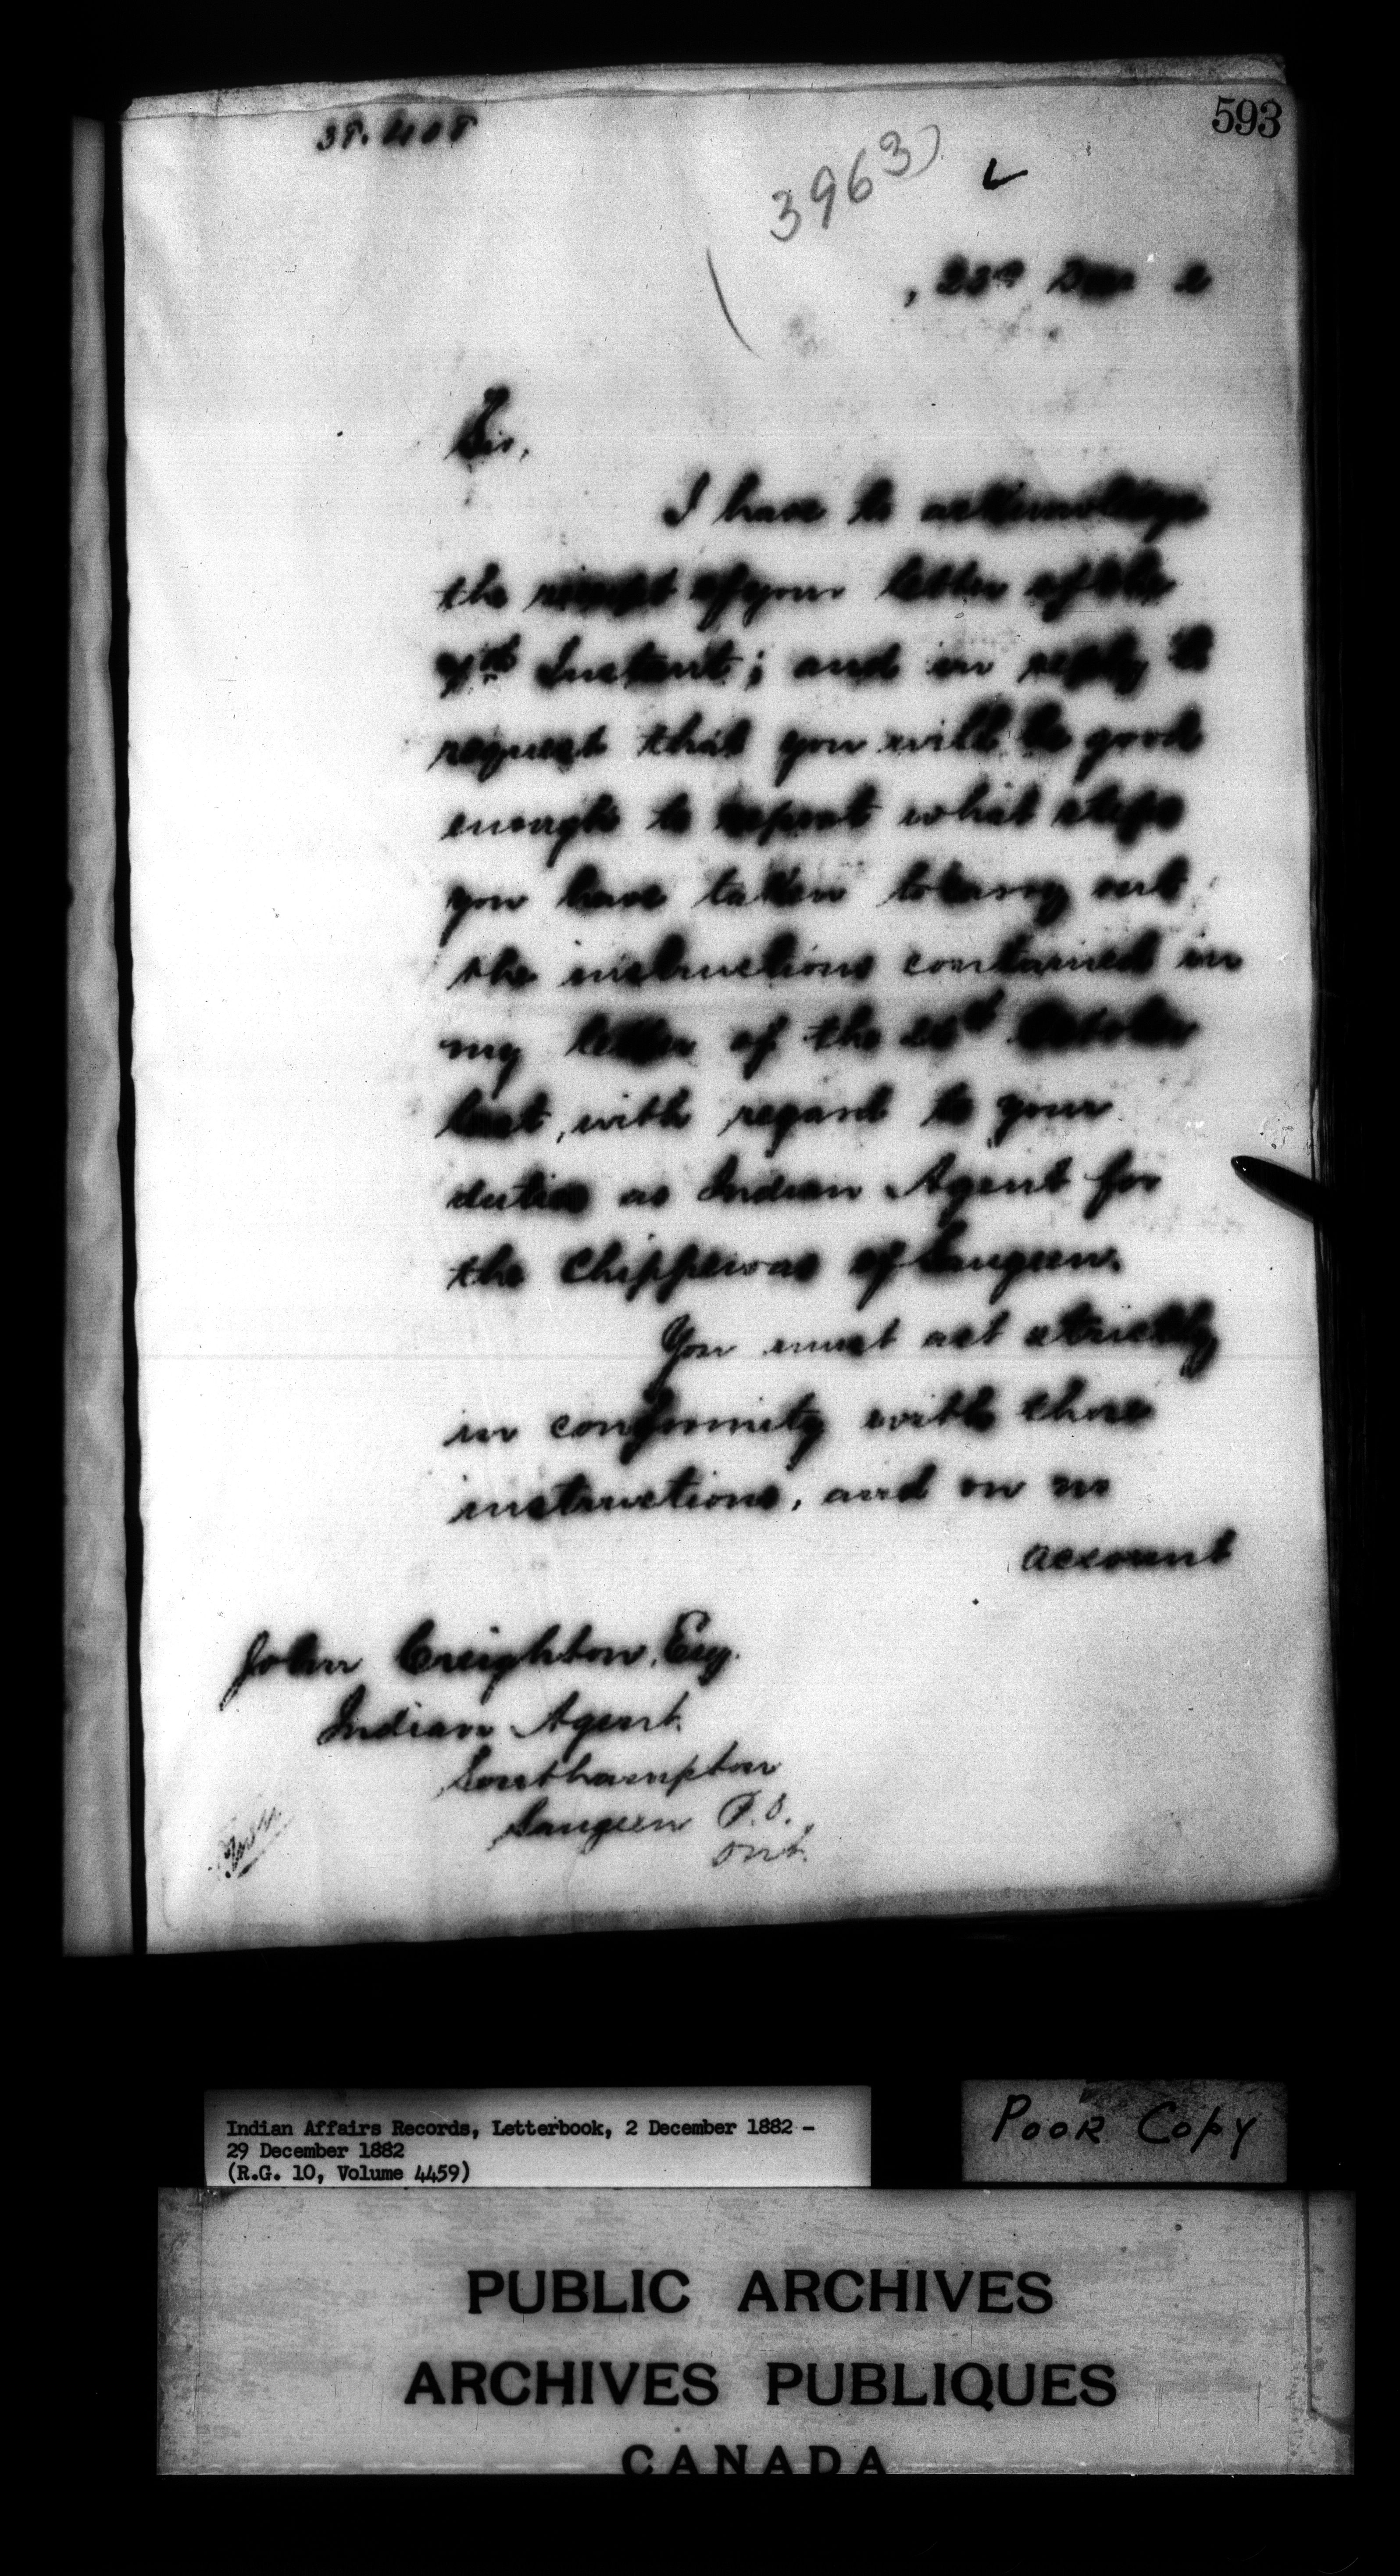 593
3963)
, 23rd Dec 2
Sir,
I have to acknowledge
the receipt of your letter of the
Instant; and in reply to
request that you will be good
enough to report what steps
you have taken to carry out
the instructions contained in
my letter of the October
last, with regard to your
duties as Indian Agent for
the Chippewas of Saugeen.
You must act strictly
in conformity with those
instructions, and on no
account
John Creighton, Esq.
Indian Agent.
Southampton
Saugeen P.O.,
Ont.
Indian Affairs Records, Letterbook, 2 December 1882 -
29 December 1882
(R.G. 10, Volume 4459)
POOR COPY
PUBLIC ARCHIVES
ARCHIVES PUBLIQUES
CANADA